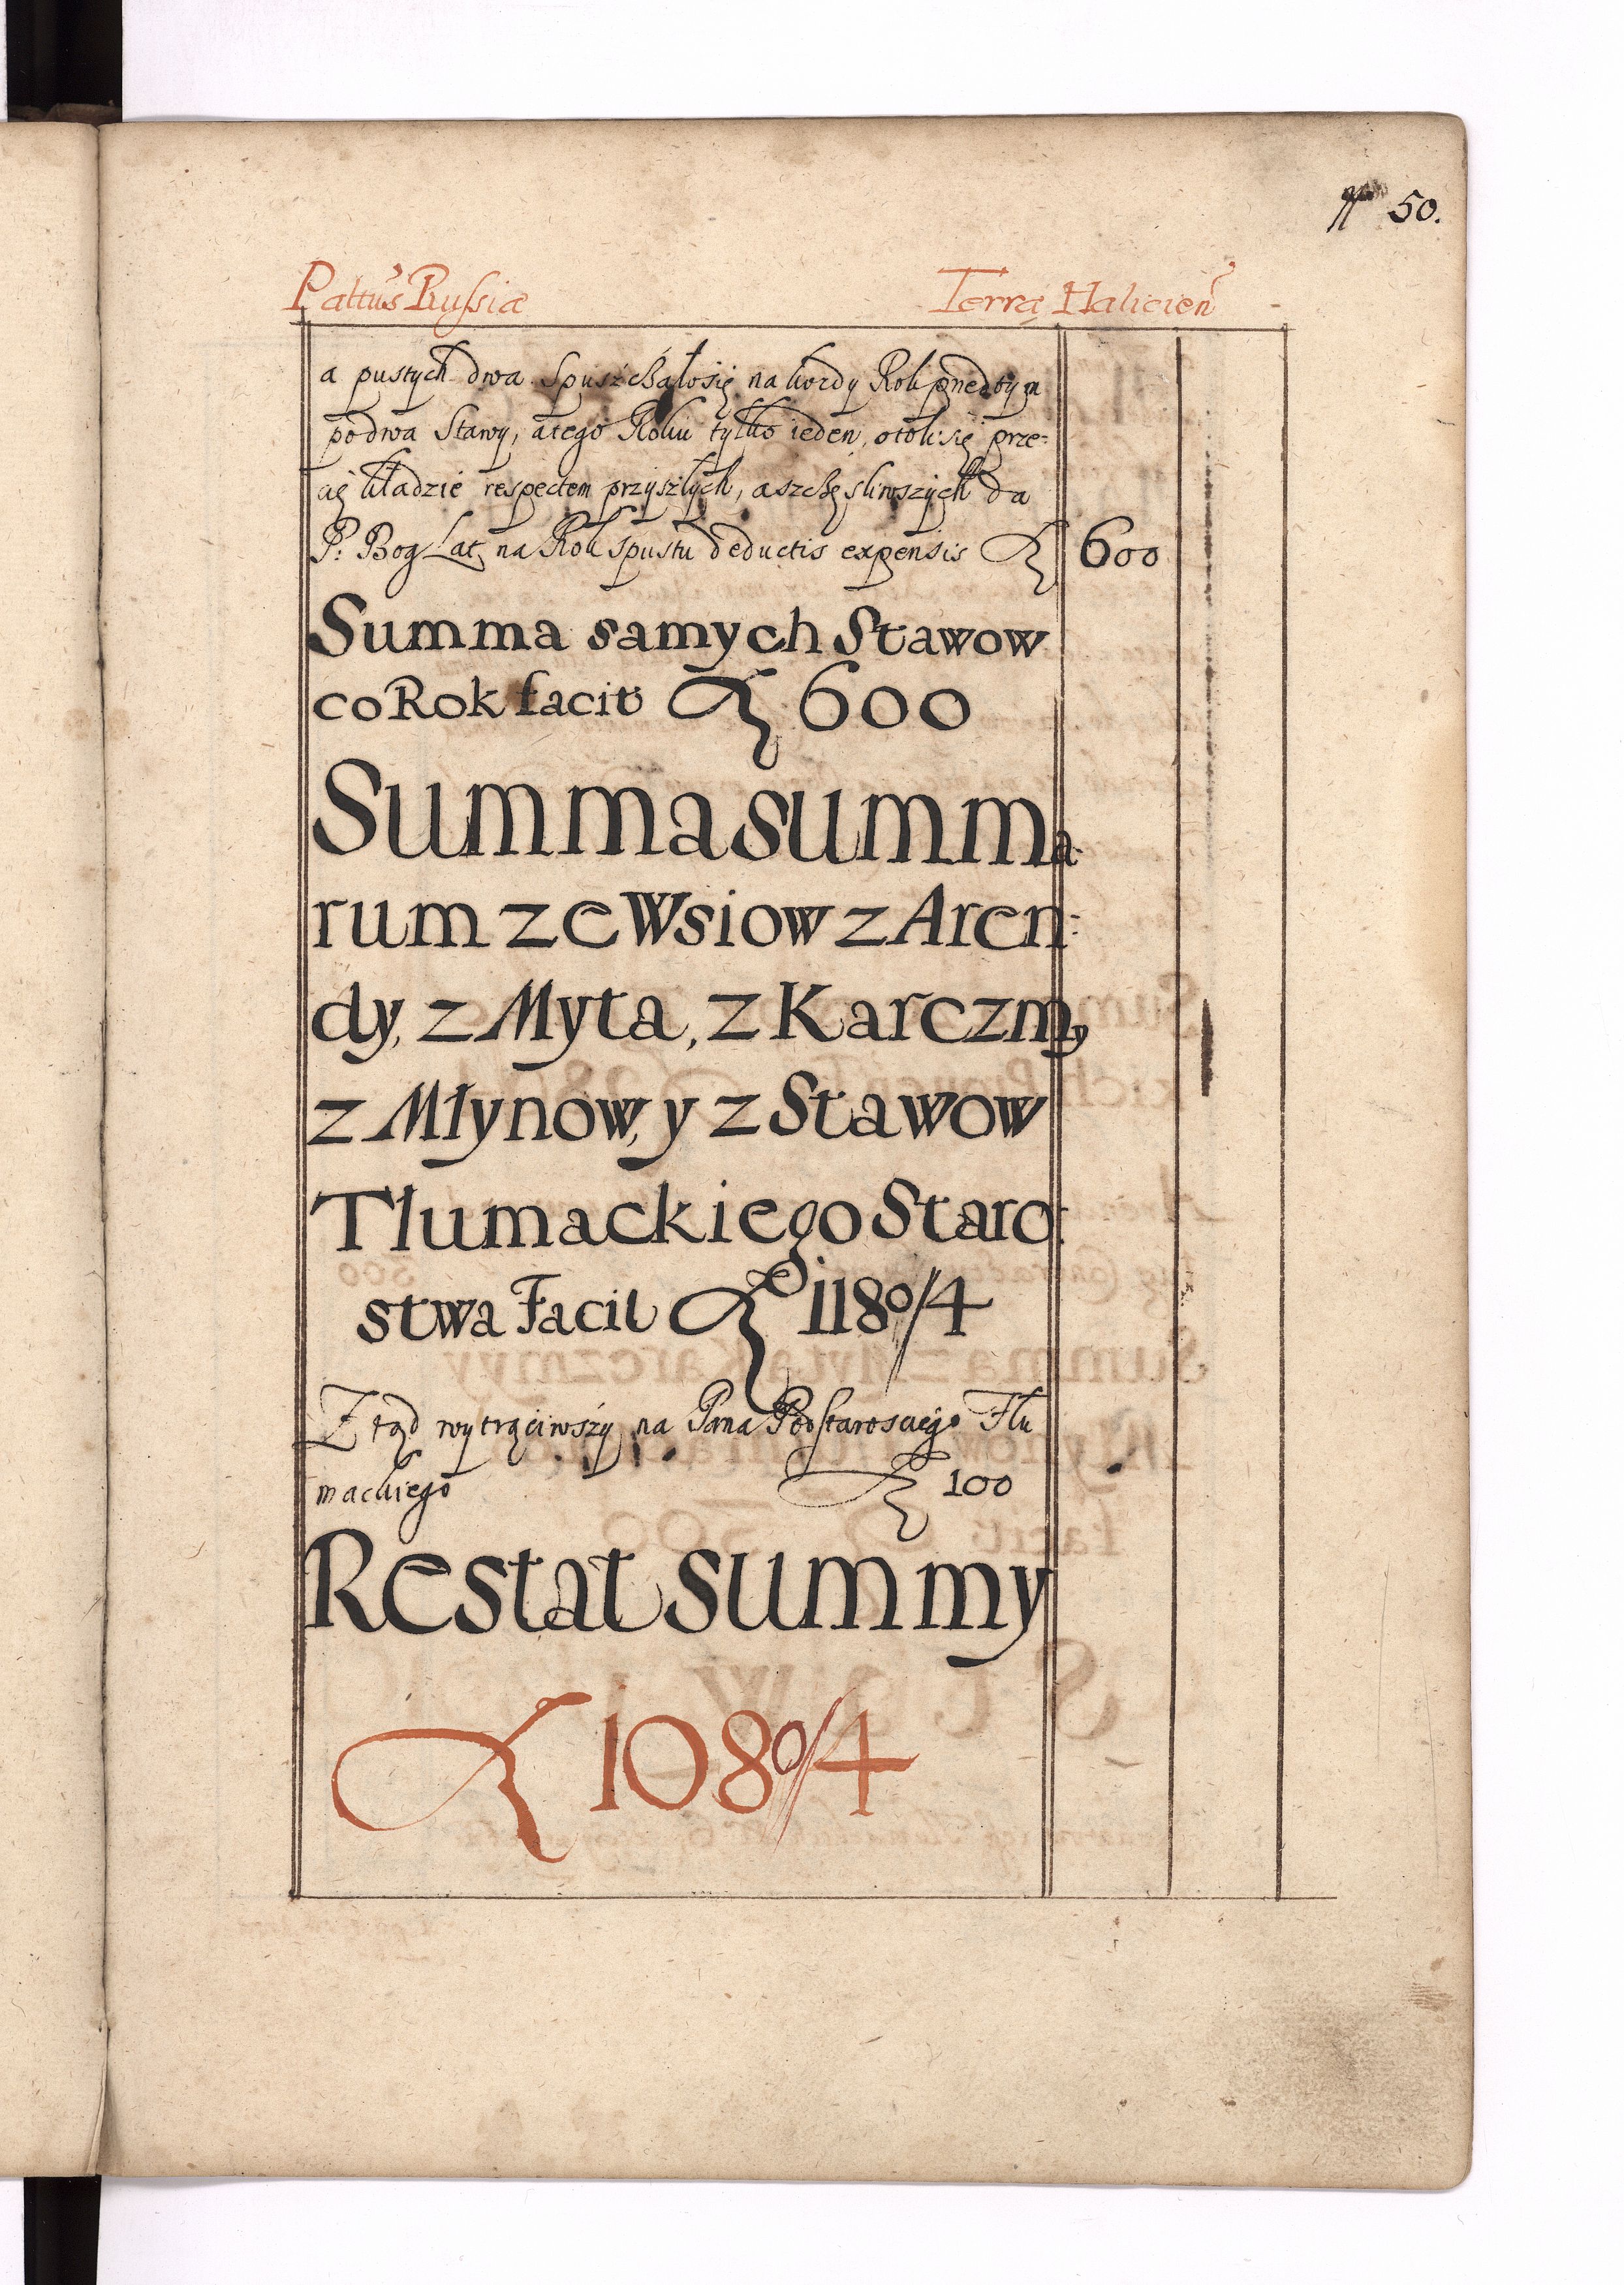 50.
Paltus Russiæ Terrę Halicień
a pustych dwa. Spuszczało się na kozdy Rok przed tym
po dwa Stawy, a tego Roku tylko ieden, otoli się prze=
cię kładzie respectem przyszłych, a szczęsliwszych da
P: Bog Lat, na Rok spustu deductis expensis 600
Summa samych Stawow
co Rok facit 600
Summa summa
rum ze Wsiow z Aren=
dy, z Myta, z Karczmy
z Młynow, y z Stawow
Tlumackiego Staro:
stwa Facit 1180/4
Z tąd wytrąciwszy na Pana Podstarosciego Tlu
mackiego 100
Restat summy
1080/4